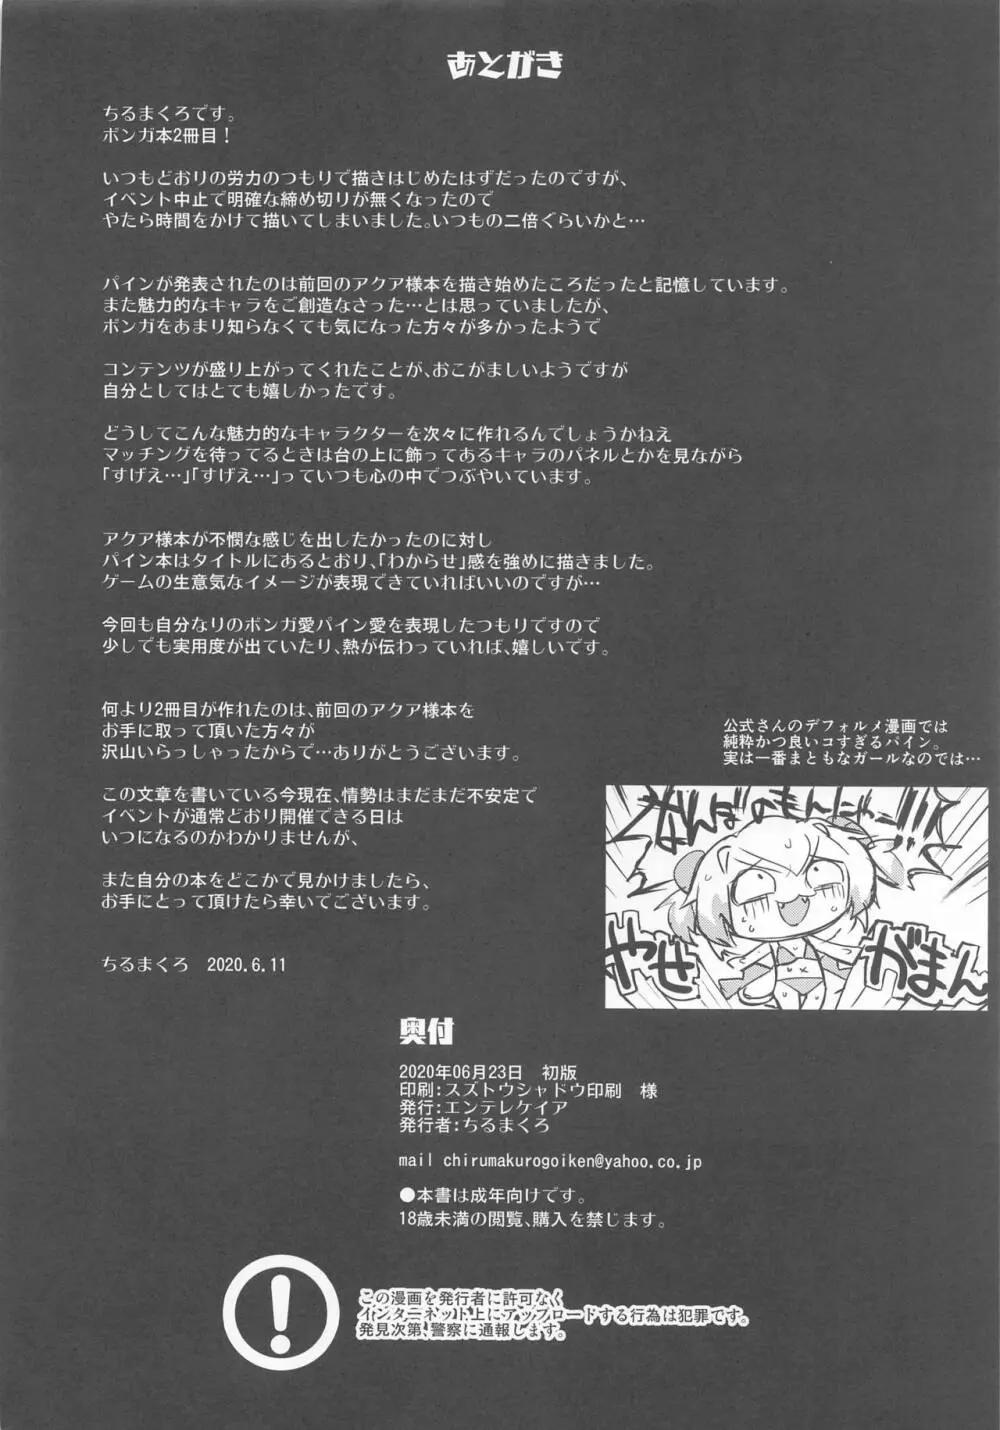 あとがき
ちるまくろです。
ボンガ本2冊目！
いつもどおりの労力のつもりで描きはじめたはずだったのですが、
イベント中止で明確な締め切りが無くなったので
やたら時間をかけて描いてしまいました。いつもの二倍ぐらいかと…
パインが発表されたのは前回のアクア様本を描き始めたころだったと記憶しています。
また魅力的なキャラをご創造なさった…とは思っていましたが、
ボンガをあまり知らなくても気になった方々が多かったようで
コンテンツが盛り上がってくれたことが、おこがましいようですが
自分としてはとても嬉しかったです。
どうしてこんな魅力的なキャラクターを次々に作れるんでしょうかねえ
マッチングを待ってるときは台の上に飾ってあるキャラのパネルとかを見ながら
「すげえ…」「すげえ…」っていつも心の中でつぶやいています。
アクア様本が不憫な感じを出したかったのに対し
パイン本はタイトルにあるとおり、「わからせ」感を強めに描きました。
ゲームの生意気なイメージが表現できていればいいのですが…
今回も自分なりのボンガ愛パイン愛を表現したつもりですので
少しでも実用度が出ていたり、熱が伝わっていれば、嬉しいです。
何より2冊目が作れたのは、前回のアクア様本を
お手に取って頂いた方々が
沢山いらっしゃったからで…ありがとうございます。
この文章を書いている今現在、情勢はまだまだ不安定で
イベントが通常どおり開催できる日は
いつになるのかわかりませんが、
また自分の本をどこかで見かけましたら、
お手にとって頂けたら幸いでございます。
ちるまくろ　2020.6.11
公式さんのデフォルメ漫画では
純粋かつ良いコすぎるパイン。
実は一番まともなガールなのでは…
なんぼのもんにゃー!!!!
やせ
がまん
奥付
2020年06月23日　初版
印刷:スズトウシャドウ印刷　様
発行:エンテレケイア
発行者:ちるまくろ
mail chirumakurogoiken@yahoo.co.jp
●本書は成年向けです。
18歳未満の閲覧、購入を禁じます。
!
この漫画を発行者に許可なく
インターネット上にアップロードする行為は犯罪です。
発見次第、警察に通報します。